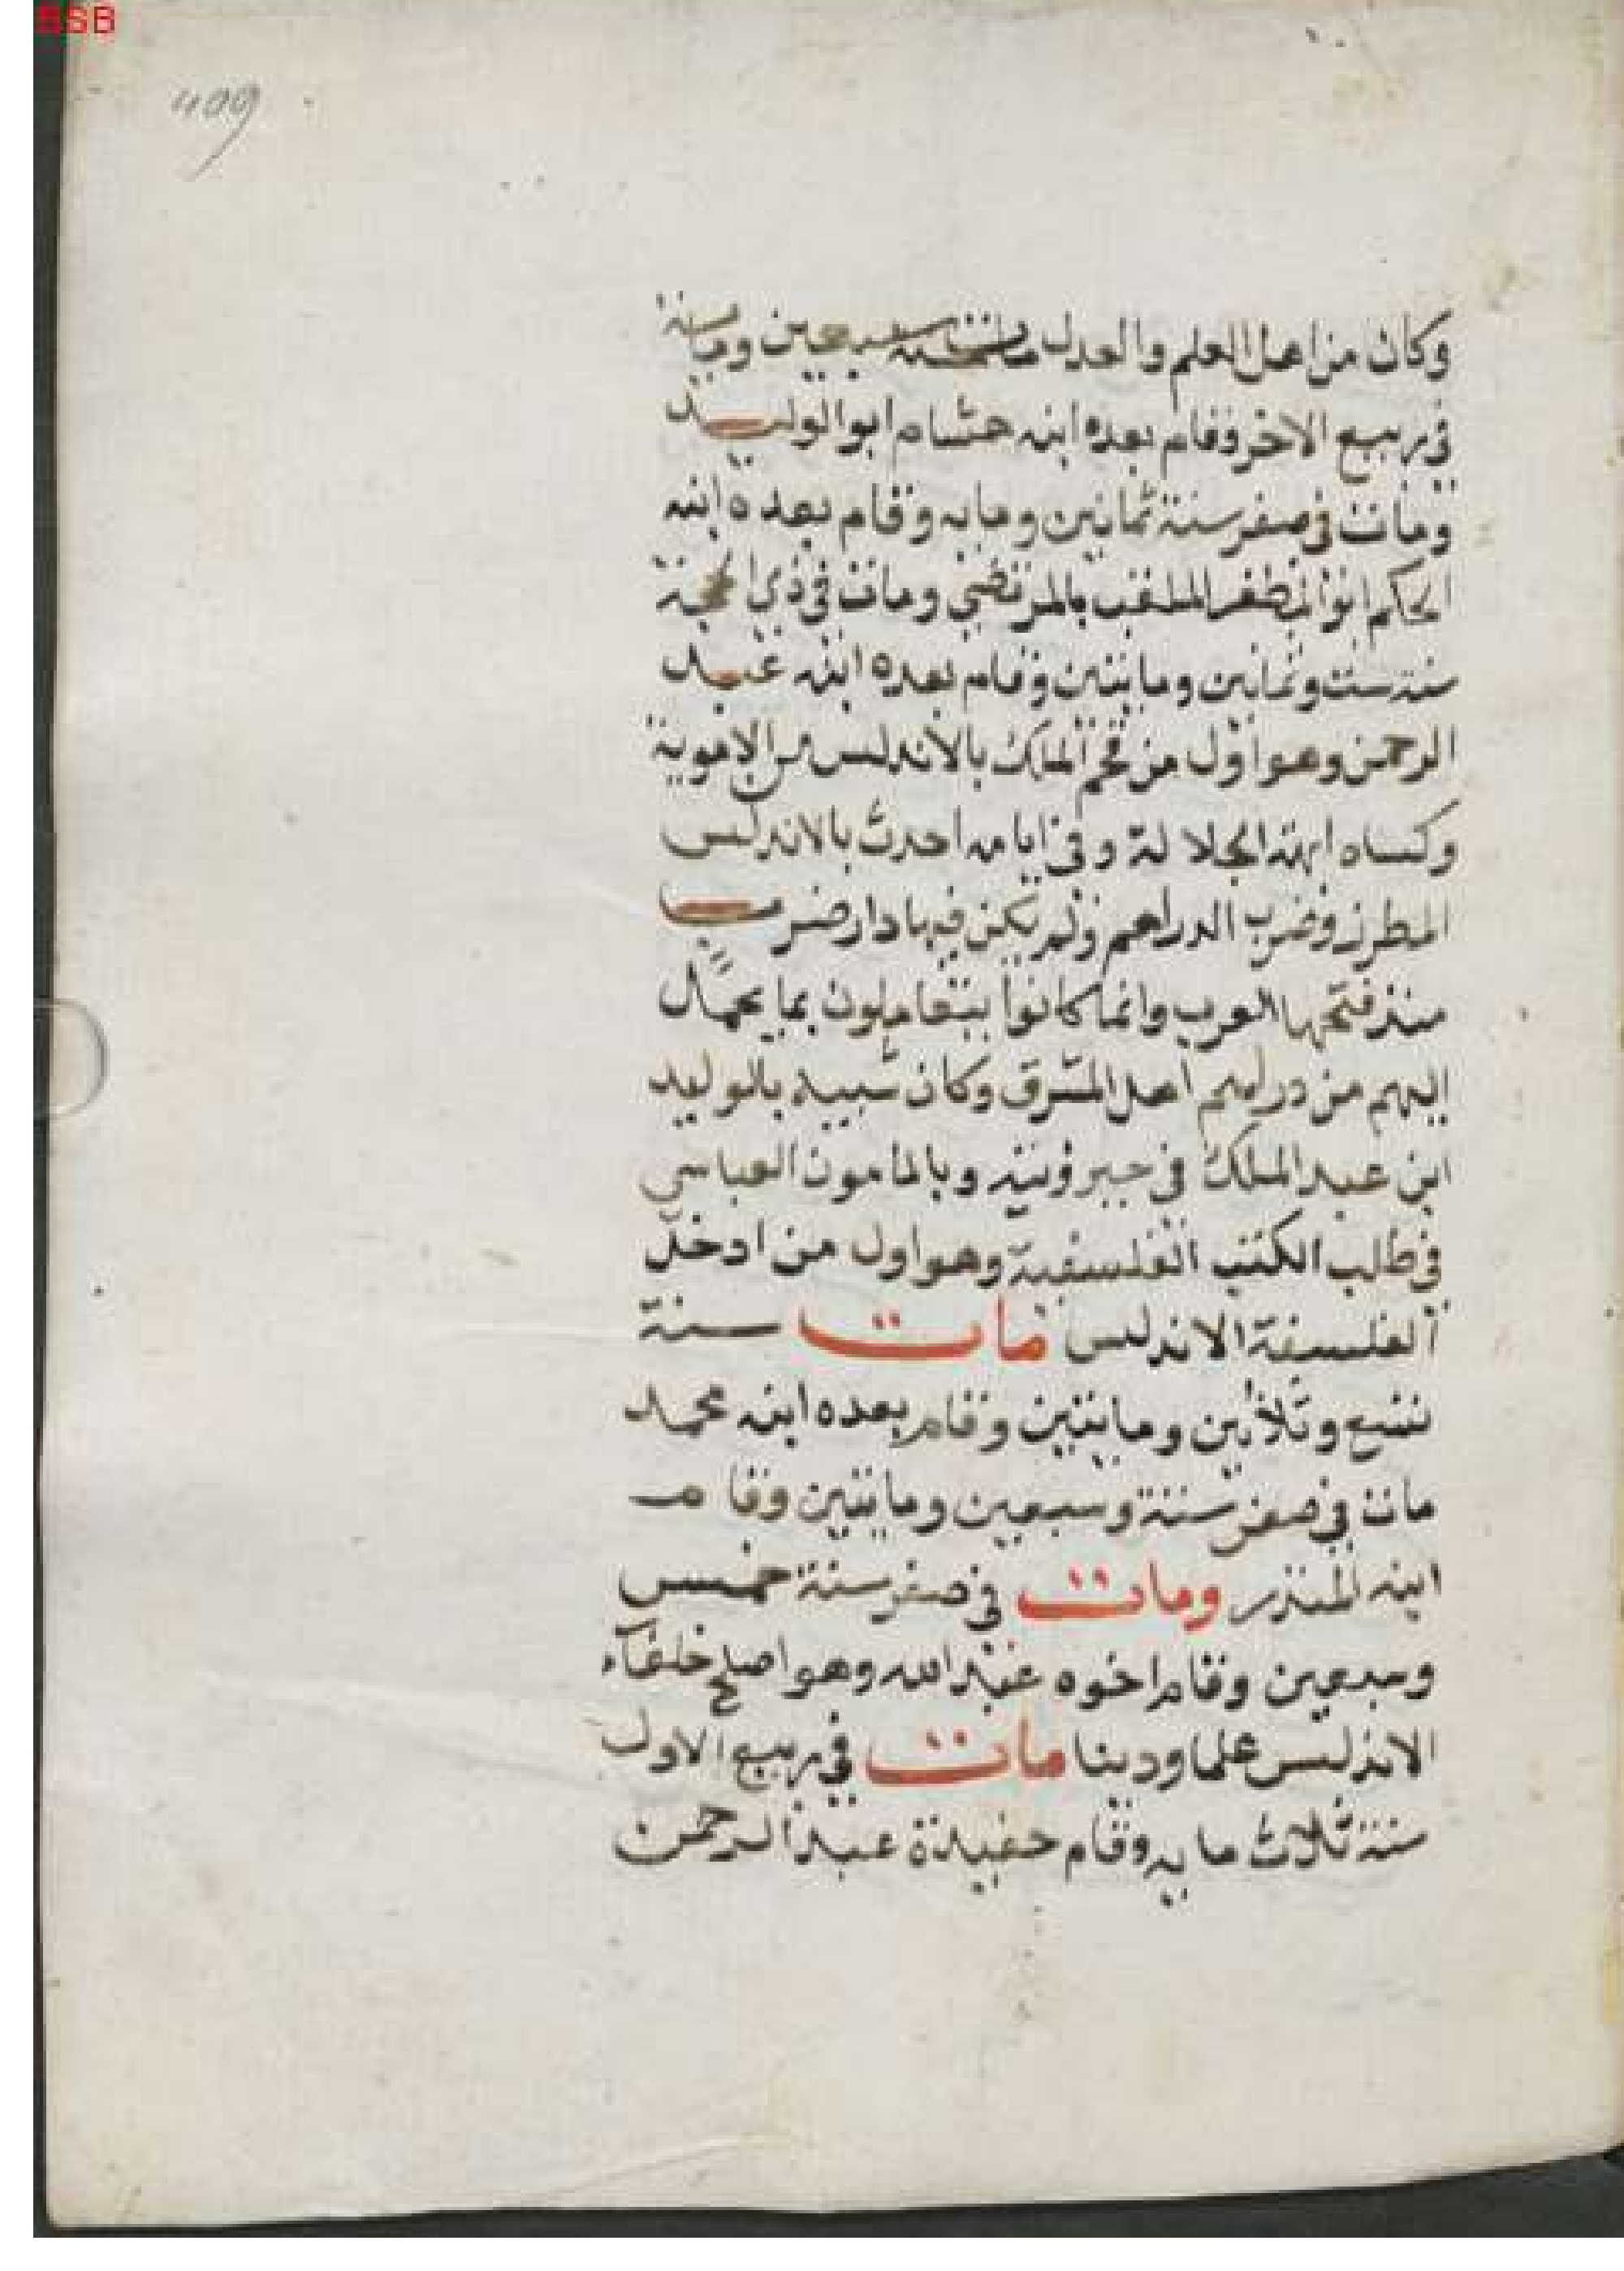 BSB
409
وكان من اهل العلم والعدل مات سنة سبعين وماية
في ربيع الاخر وقام بعده ابنه هشام ابو الوليد
ومات في صفر سنة ثمانين ومايه وقام بعده ابنه
الحكم ابو المظفر الملقب بالمرتضي ومات في ذي الحجة
سنة ست وثمانين ومايتين وقام بعده ابنه عبد
الرحمن وهو اول من فخم الملك بالاندلس من الاموية
وكساه ابهة الجلالة وفي ايامه احدث بالاندلس
المطرز وضرب الدراهم ولم يكن فيها دار ضرب
منذ فتحها العرب وانما كانوا يتعاملون بما يحمل
اليهم من دراهم اهل المشرق وكان شبيه بالوليد
ابن عبد الملك في جبروتيه وبالمامون العباسي
في طلب الكتب الفلسفية وهو اول من ادخل
الفلسفة الاندلس مات سنة
تسع وثلاثين ومايتين وقام بعده ابنه محمد
مات في صفر سنة وسبعين ومايتين وقام
ابنه المنذر ومات في صفر سنة خمس
وسبعين وقام اخوه عبد الله وهو اصلح خلفآء
الاندلس علما ودينا مات في ربيع الاول
سنة ثلاث مايه وقام حفيدة عبد الرحمن